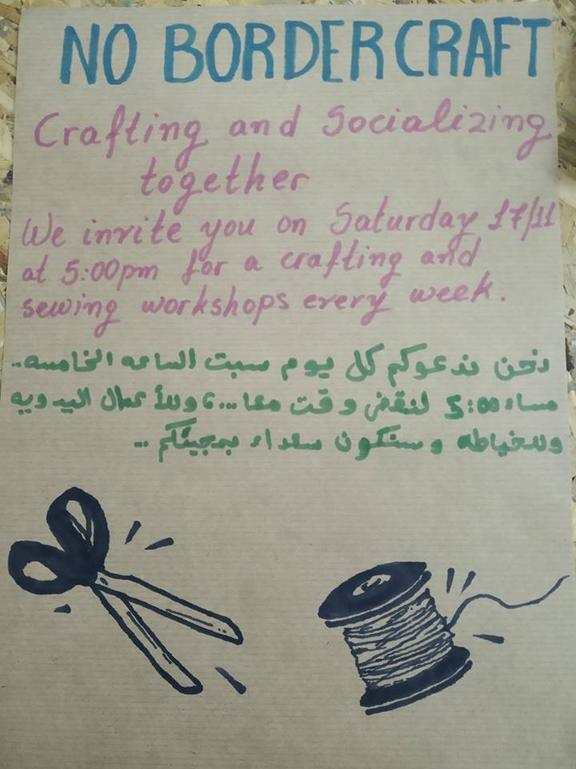 NO BORDER CRAFT
Crafting and Socializing
together
We invite you on Saturday 17/11
at 5:00pm for a crafting and
sewing workshops every week.
نحن ندعوكم كل يوم سبت الساعه الخامسه..
مساء 5:00 لنقض وقت معا... وللأعمال اليدويه
وللخياطه وسنكون سعداء بمجيئكم ..